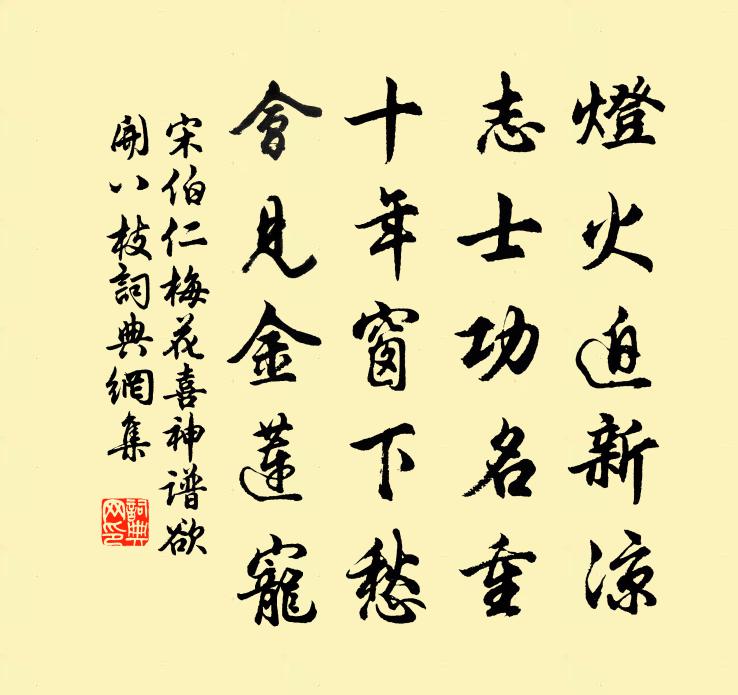 燈火迫新涼
志士功名重
十年窗下愁
會見金蓮寵
宋伯仁梅花喜神譜欲
開八枝詞典網集
詞典网印